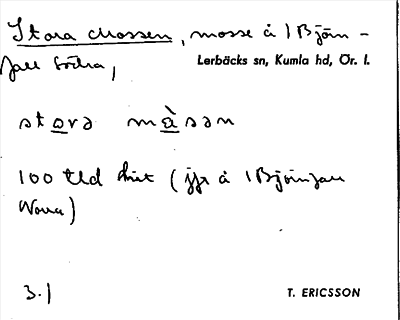 Stora Mossen, mosse å 1 Björn-
fall Södra,
Lerbäcks sn, Kumla hd, Ör. l.
stọrə mɑ̀sən
100 tld (jfr å 1 Björnfall
Norra)
3.1
T. ERICSSON